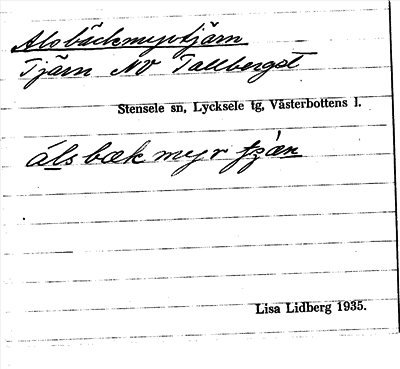 Alsbäckmyrtjärn
Tjärn NV Tallbergst
Stensele sn, Lycksele tg, Västerbottens l.
álsbækmyrtjæ̀n
Lisa Lidberg 1935.